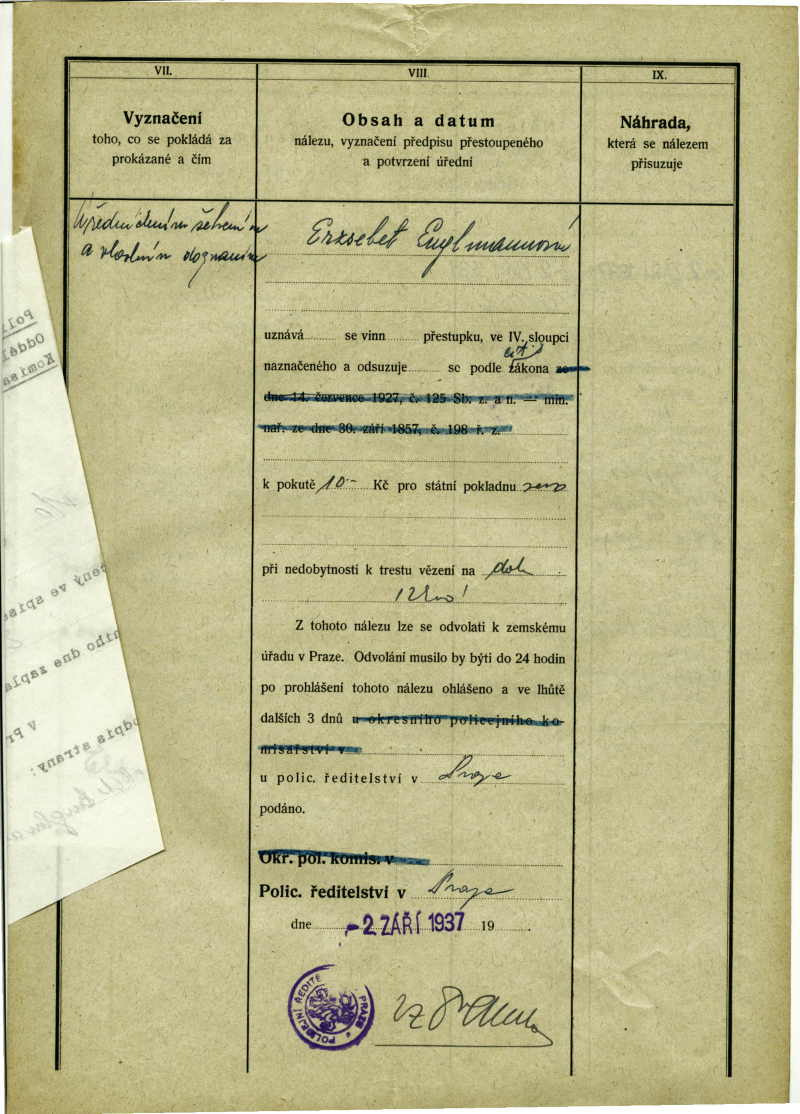 VII.
Vyznačení
toho, co se pokládá za
prokázané a čím
a vlastním doznáním
VIII.
Obsah a datum
nálezu, vyznačení předpisu přestoupeného
a potvrzení úřední
Erzsebet Englmannová
uznává se vinn přestupku, ve IV. sloupci
naznačeného a odsuzuje se podle cit. zákona ze
dne 14. července 1927, č. 125 Sb. z. a n. — min.
nař. ze dne 30. září 1857, č. 198 ř. z.
k pokutě 10.- Kč pro státní pokladnu
při nedobytnosti k trestu vězení na dob.
12 hod
Z tohoto nálezu lze se odvolati k zemskému
úřadu v Praze. Odvolání musilo by býti do 24 hodin
po prohlášení tohoto nálezu ohlášeno a ve lhůtě
dalších 3 dnů u okresního policejního ko-
misařství v
u polic. ředitelství v Praze
podáno.
Okr. pol. komis. v
Polic. ředitelství v Praze
dne -2. ZÁŘÍ 1937 19
POLICEJNÍ ŘEDITE PRAZE
IX.
Náhrada,
která se nálezem
přisuzuje
Poli
Odděl
Komisa
ený ve spisu
ního dne zapla
v Pr
odpis strany: